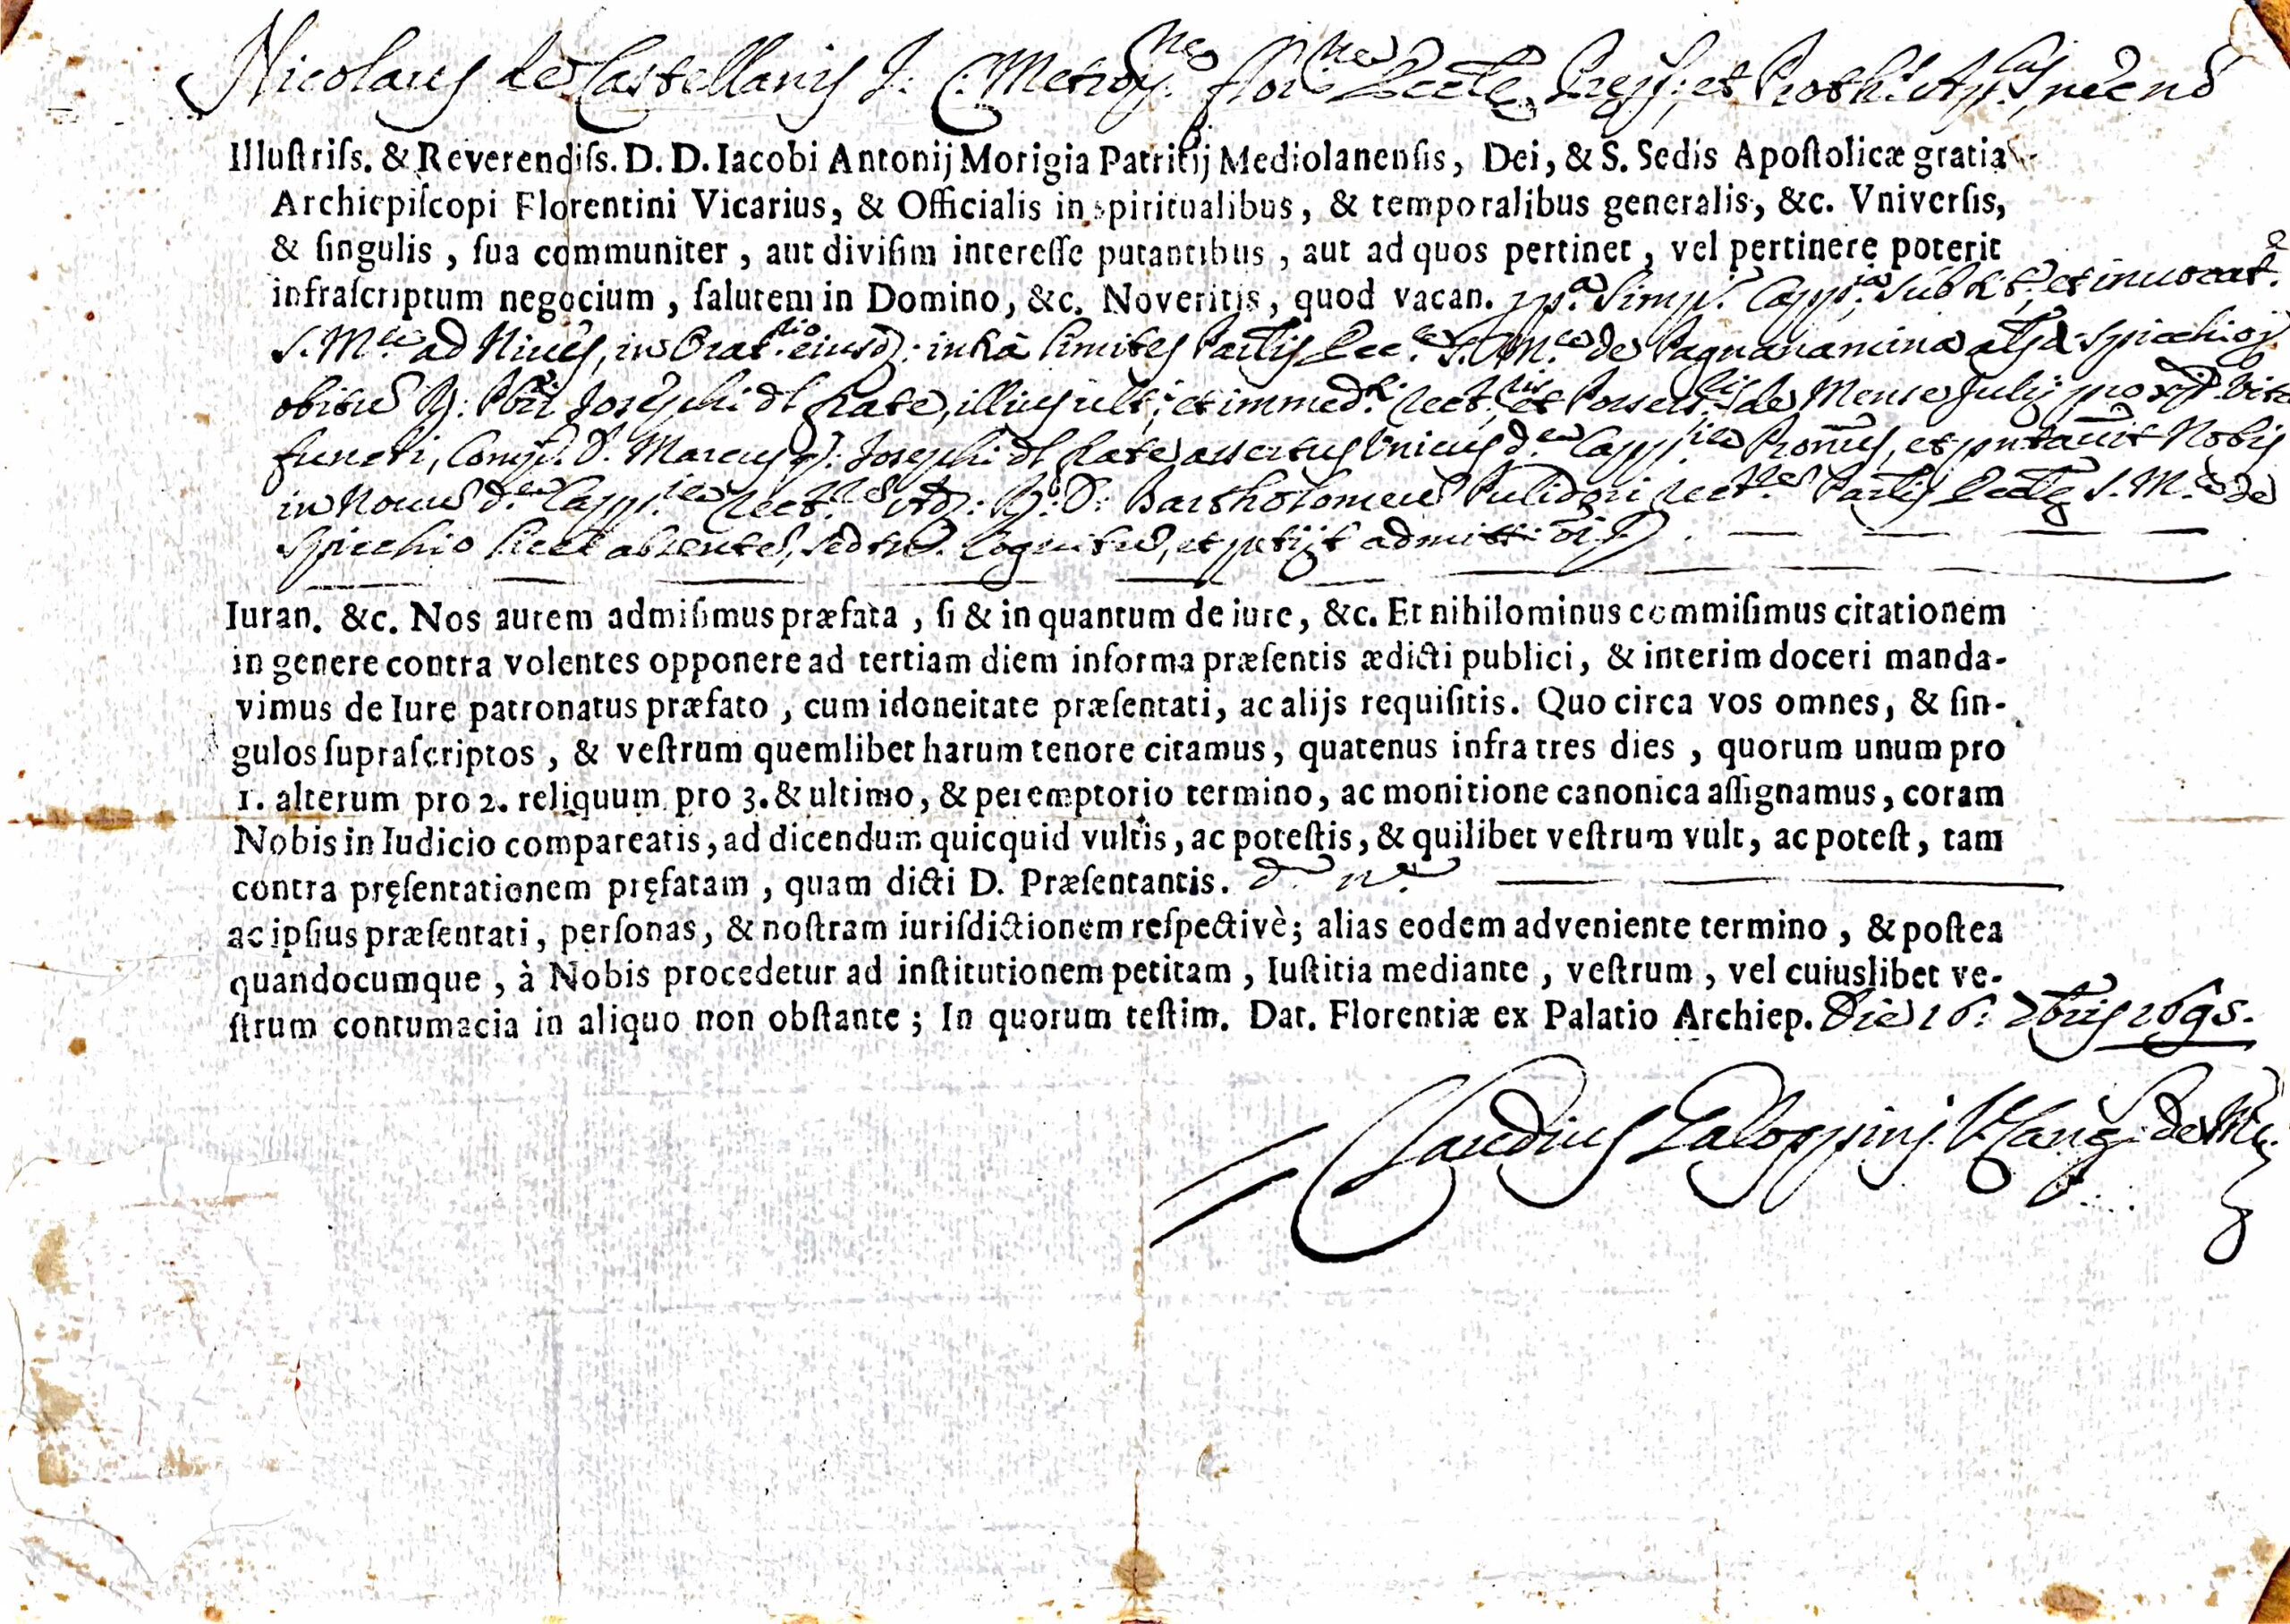 Nicolaus de Castellanis J. C. Metrop.ne flor.ne Eccle
Illuſtriſs. & Reverendiſs. D. D. Iacobi Antonij Morigia Patritij Mediolanenſis, Dei, & S. Sedis Apoſtolicæ gratia
Archiepiſcopi Florentini Vicarius, & Officialis in spiritualibus, & temporalibus generalis, &c. Vniverſis,
& ſingulis, ſua communiter, aut diviſim intereſſe putantibus, aut ad quos pertinet, vel pertinere poterit
infraſcriptum negocium, ſalutem in Domino, &c. Noveritis, quod vacan. Simp. Capp.ia sub et inuocat.e
S. M.ae ad Niues, in Orat.rio eiusd: intra limites Eec.ae S. M.ae de Pagnanamina a Spicchio p.
obitus Josephi dl frate, illius ult: et immed.i Rect.ris et de Mense Julij prox.
functi, Comp. D. Marcus q. Josephi dl frate assertus Vnicus d.ae Capp.iae et Nobis
in d.ae Capp.iae Rect.rem D: Bartholomeus Pulidori Rect.rem S. M.ae de
Spicchio licet absentem, et petijt admitti
Iuran. &c. Nos autem admiſimus præfata, ſi & in quantum de iure, &c. Et nihilominus commiſimus citationem
in genere contra volentes opponere ad tertiam diem in forma præſentis ædicti publici, & interim doceri manda-
vimus de Iure patronatus præfato, cum idoneitate præſentati, ac alijs requiſitis. Quo circa vos omnes, & ſin-
gulos ſupraſcriptos, & veſtrum quemlibet harum tenore citamus, quatenus infra tres dies, quorum unum pro
1. alterum pro 2. reliquum pro 3. & ultimo, & peremptorio termino, ac monitione canonica aſſignamus, coram
Nobis in Iudicio compareatis, ad dicendum quicquid vultis, ac poteſtis, & quilibet veſtrum vult, ac poteſt, tam
contra pręſentationem pręfatam, quam dicti D. Præſentantis.
ac ipſius præſentati, perſonas, & noſtram iuriſdictionem reſpectivè; alias eodem adveniente termino, & poſtea
quandocumque, à Nobis procedetur ad inſtitutionem petitam, Iuſtitia mediante, veſtrum, vel cuiuslibet ve-
ſtrum contumacia in aliquo non obſtante; In quorum teſtim. Dat. Florentiæ ex Palatio Archiep. Die 16: 1695.
Claudius Galoppinj